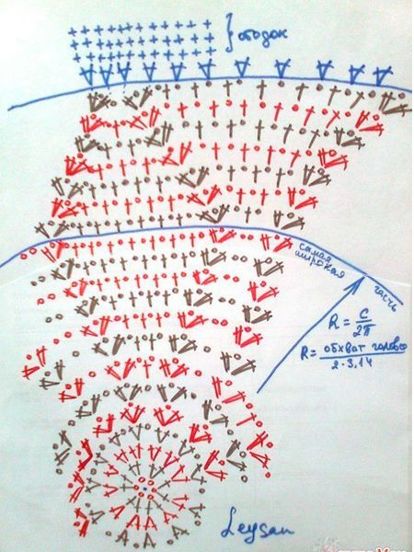 ободок
самая
широкая
часть
R = C/2π
R = обхват головы/2·3,14
Leysan